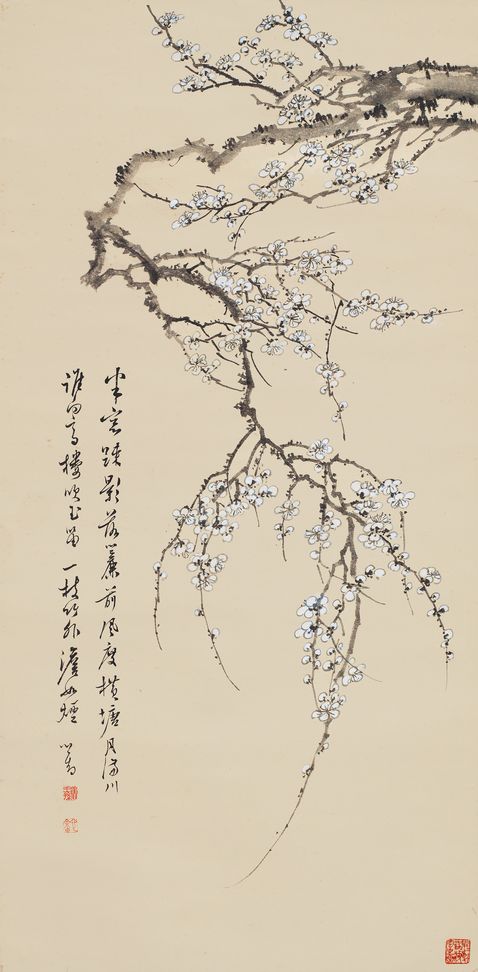 半窗疎影落簾前風度橫塘月滿川
誰向高樓吹玉笛一枝竹外澹如煙 心畬